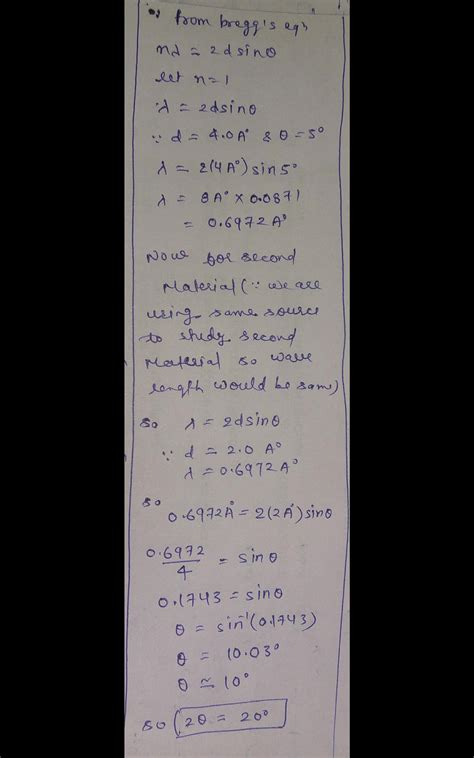 from bragg's eqn
nλ = 2dsinθ
let n=1
∴ λ = 2dsinθ
∵ d = 4.0A° & θ=5°
λ = 2(4A°)sin5°
λ = 8A° × 0.0871
= 0.6972A°
Now for second
Material (∵ we are
using same source
to study second
Material so wave
length would be same)
so λ = 2dsinθ
∵ d = 2.0 A°
λ = 0.6972A°
so
0.6972A° = 2(2A°)sinθ
0.6972/4 = sinθ
0.1743 = sinθ
θ = sin⁻¹(0.1743)
θ = 10.03°
θ ≃ 10°
so 2θ = 20°